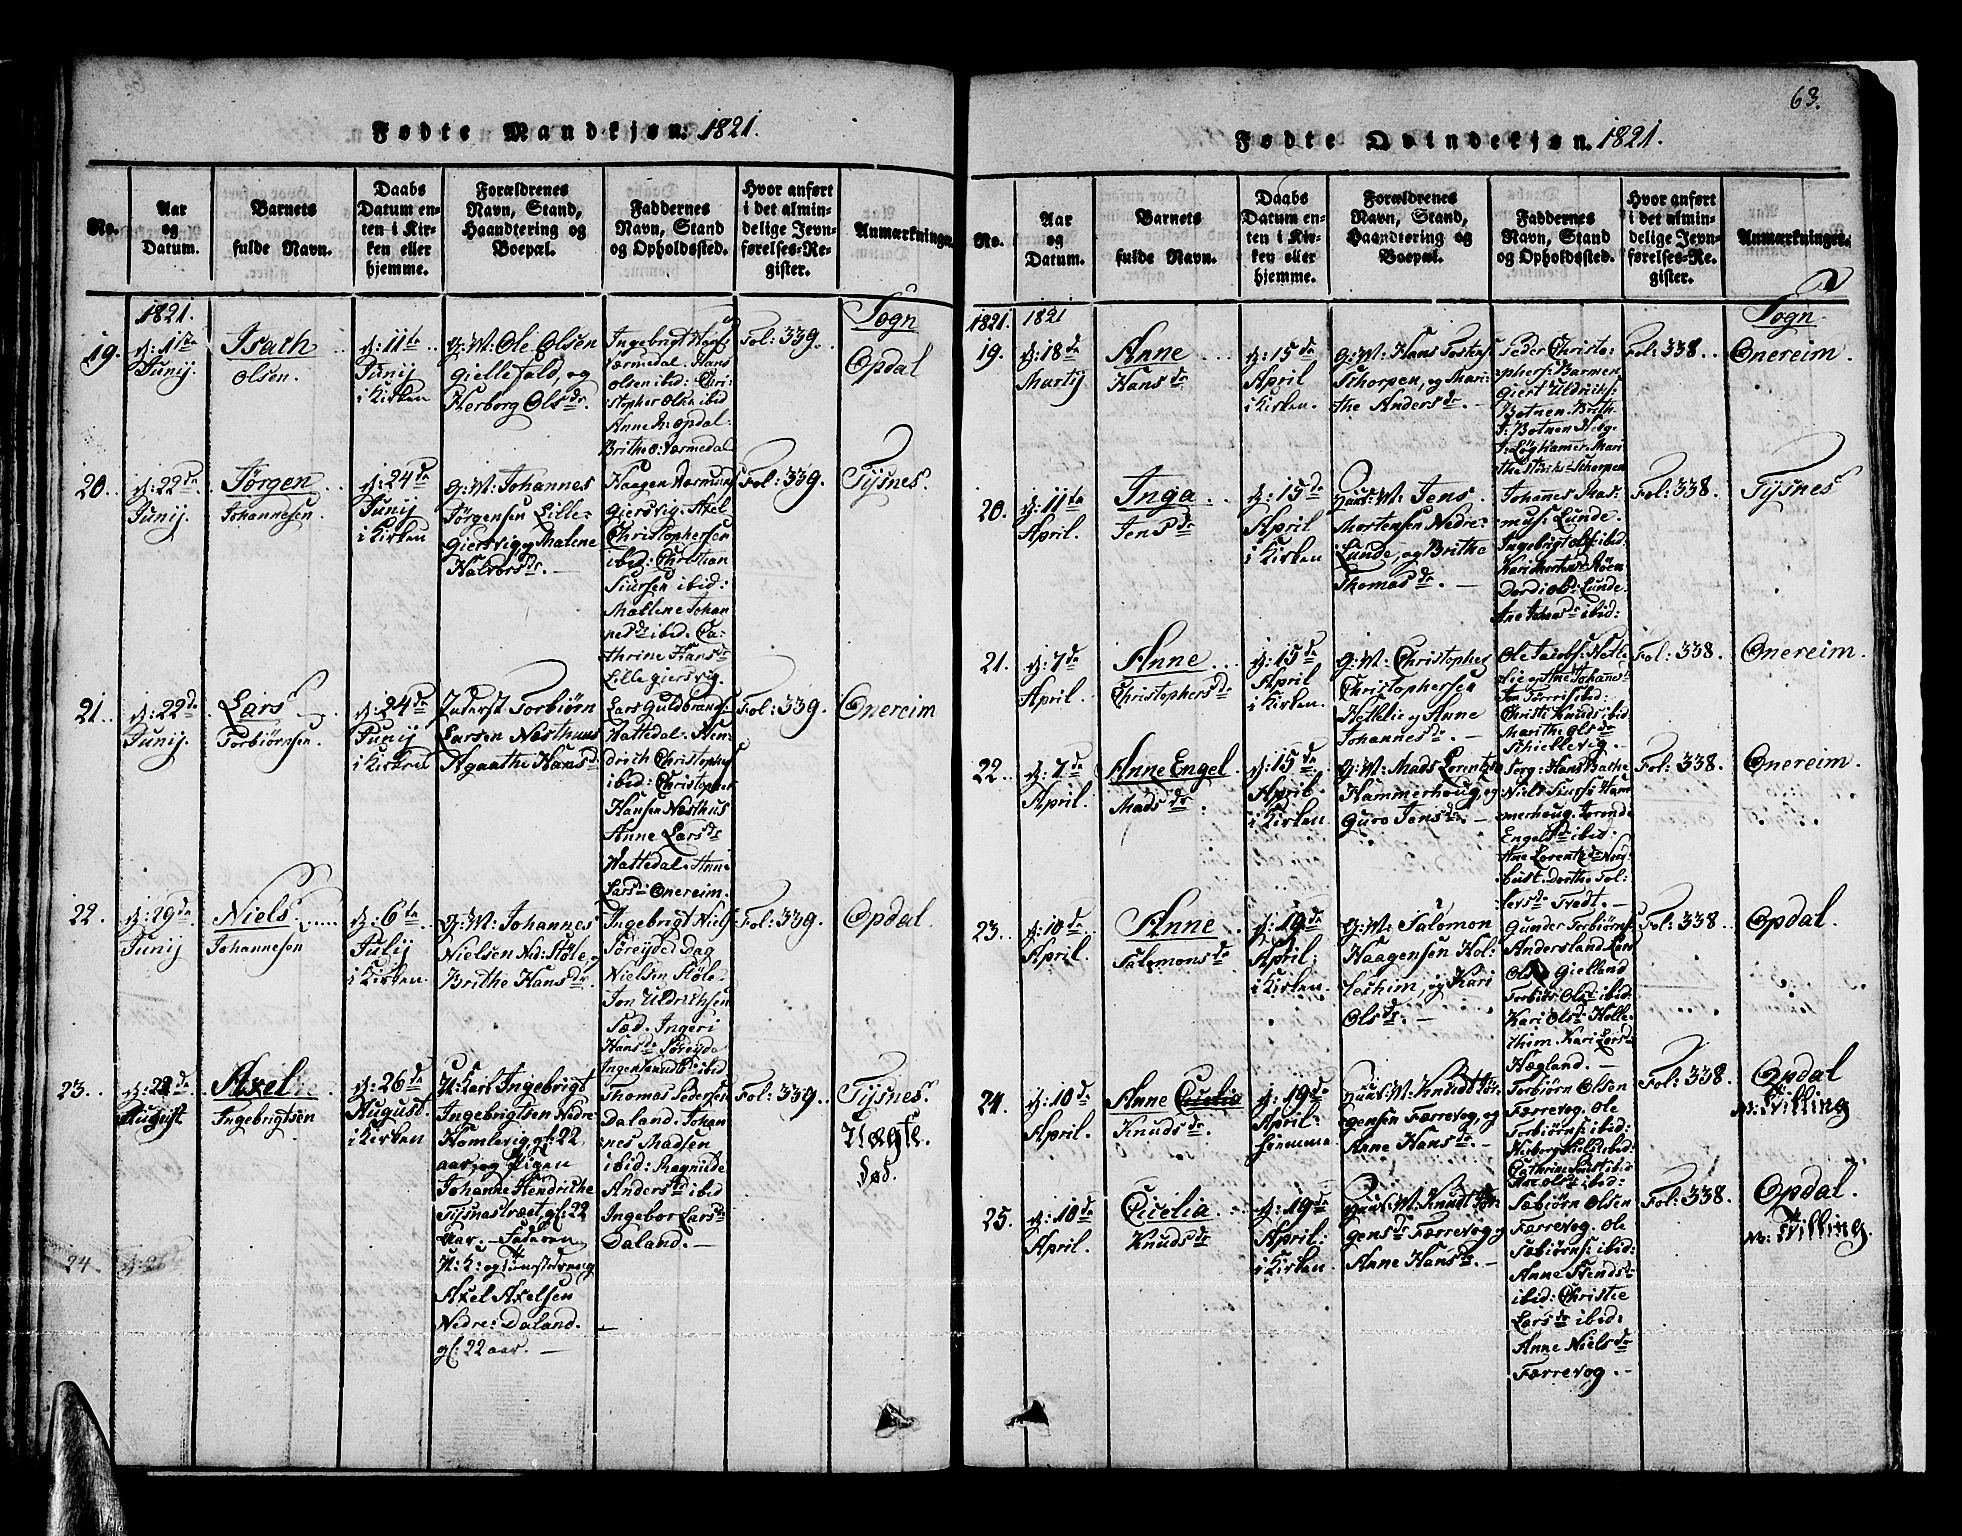 63.
Fødte Mandkjøn. 1821.
No.
Aar
og
Datum.
Barnets
fulde Navn.
Daabs
Datum en-
ten i Kir-
ken eller
hjemme.
Forældrenes
Navn, Stand,
Haandtering og
Boepæl.
Faddernes
Navn, Stand
og Opholdssted.
Hvor anført
i det almin-
delige Jevn-
førelses-Re-
gister.
Anmærkninger.
1821.
Sogn
19.
d: 11te
Junij.
Olsen.
d: 11te
Junij
i Kirken
G: M: Ole Olsen
Giellefald, og
Herborg Olsdr.
Ingebrigt
Værmedal. Hans
Olsen ibid: Chri-
stopher Olsen ibid
Anne R: Opdal.
Brithe O: Værmedal
Fol: 339.
Opdal
20.
d: 22de
Junij.
Jørgen
Johannesen.
d: 24de
Junij
i Kirken
G: M: Johannes
Jørgensen Lille-
Giersvig og Malene
Halvorsdr. —
Haagen Rasmuns
Giersvig. Axel
Christophersen
ibid: Christian
Siursen ibid:
Mallene Johan
nesdr ibid. Ca-
thrine Hansdr
Lille giersvig.
Fol: 339.
Tysnes.
21.
d: 22de
Junij.
Lars
Torbiørnsen.
d: 24de
Junij
i Kirken
Inderst Torbiørn
Larsen Næsthuus
Agaathe Hansdr
Lars Guldbrans
Hattedal. Hen-
drich Christophers
ibid: Christopher
Hansen Næsthus
Anne Larsdr
Hattedal. Anne
Larsdr Onereim.
Fol: 339.
Onereim
22.
d: 29de
Junij
Niels
Johannesen
d: 6te
Julij
i Kirken
G: M: Johannes
Nielsen Ned: Støle, og
Brithe Hansdr.
Ingebrigt Niels
Søreyde. Dag
Nielsen Støle.
Jon Uldrichsen
Sæd. Ingeri
Hansdr Søreyde
Inger Knudsdr ibid
Fol: 339.
Opdal.
23.
d: 22de
August
Axel
Ingebrigtsen
d: 26de
August
i Kirken
U: Karl Ingebrigt
Ingebrigtsen Nedre
Homlevig, gl: 22
aar, og Pigen
Johanne Hendrichs
Tysnastræet gl: 22
Aar. —
U: K: og
Axel Axelsen
Nedre: Daland.
gl: 22 aar. —
Thomas Pedersen
Daland. Johan
nes Madsen
ibid: Ragnilde
Andersdr ibid
Ingebor Larsdr
Daland. —
Fol: 339
Tysnes.
Uægte.
død.
24
Fødte Qvindekjøn. 1821.
No.
Aar
og
Datum.
Barnets
fulde Navn.
Daabs
Datum en-
ten i Kir-
ken eller
hjemme.
Forældrenes
Navn, Stand,
Haandtering og
Boepæl.
Faddernes
Navn, Stand
og Opholdssted.
Hvor anført
i det almin-
delige Jevn-
førelses-Re-
gister.
Anmærkninger.
1821. 1821
Sogn.
19.
d: 18de
Martij
Anne
Hansdr
d: 15de
April
i Kirken.
G: M: Hans Tostens
Schorpen, og Mari-
the Andersdr. —
Peder Christo-
phers: Barmen
Giert Uldrichs:
Botnen. Brith
Fol: 338.
Onereim.
20.
d: 11te
April.
Inga
Jensdr
d: 15de
April
i Kirken
Huus: M: Jens
Mortensen Nedre-
Lunde, og Brithe
Thomasdr. —
Johannes Ras:
mus: Lunde.
Ingebrigt Ols: ibid:
Dordi Olsd: Lunde.
Fol: 338.
Tysnes
21.
d: 7de
April.
Anne
Christophersdr
d: 15de
April
i Kirken.
G: M: Christopher
Christophersen
Hettelie og Anne
Johannesdr. —
Ole Jacobs: Hette
lie og Ane Johanesdr
Christi Knuds ibid
Marithe Olsdr
Schiellevig. —
Fol: 338.
Onereim.
22.
d: 7de
April.
Anne Engel
Madsdr
d: 15de
April
i Kirken
G: M: Mads Lorentzen
Hammerhoug, og
Guro Jensdr. —
Serg: Hans Bathe
Niels Siurs: Ham
merhoug.
Engelsdr ibid:
Ane Lorentzdr
Fol: 338.
Onereim.
23.
d: 10de
April.
Anne
Salomonsdr
d: 19de
April.
i Kirken.
G: M: Salomon
Haagensen Hol-
leshim, og Kari
Olsdr. —
Gunder Torbiørns:
Andersland
Ols Gielland
Torbiør Olsd ibid:
Kari Olsd Holle
thim. Kari Larsd
Hægland. —
Fol: 338
Opdal.
24.
d: 10de
April.
Anne
Knudsdr
d: 19de
April.
Huus: M: Knudt Tør-
gensen Færrevog, og
Anne Hansdr. —
Torbiørn Olsen
Færrevog. Ole
Torbiørns: ibid:
Herborg Nielsd ibid:
Fol: 338.
Opdal
NB: Tvilling
25.
d: 10de
April.
Cicelia
Knudsdr
d: 19de
April:
i Kirken
Huus: M: Knudt Tør-
gensdr Færrevog og
Anne Hansdr. —
Sæbiørn Olsen
Færrevog. Ole
Sæbiørns: ibid:
Anne Stendsdr
ibid: Christie
Larsdr ibid:
Anne Nielsdr
Færrevog. —
Fol: 338.
Opdal.
NB: Tvilling.